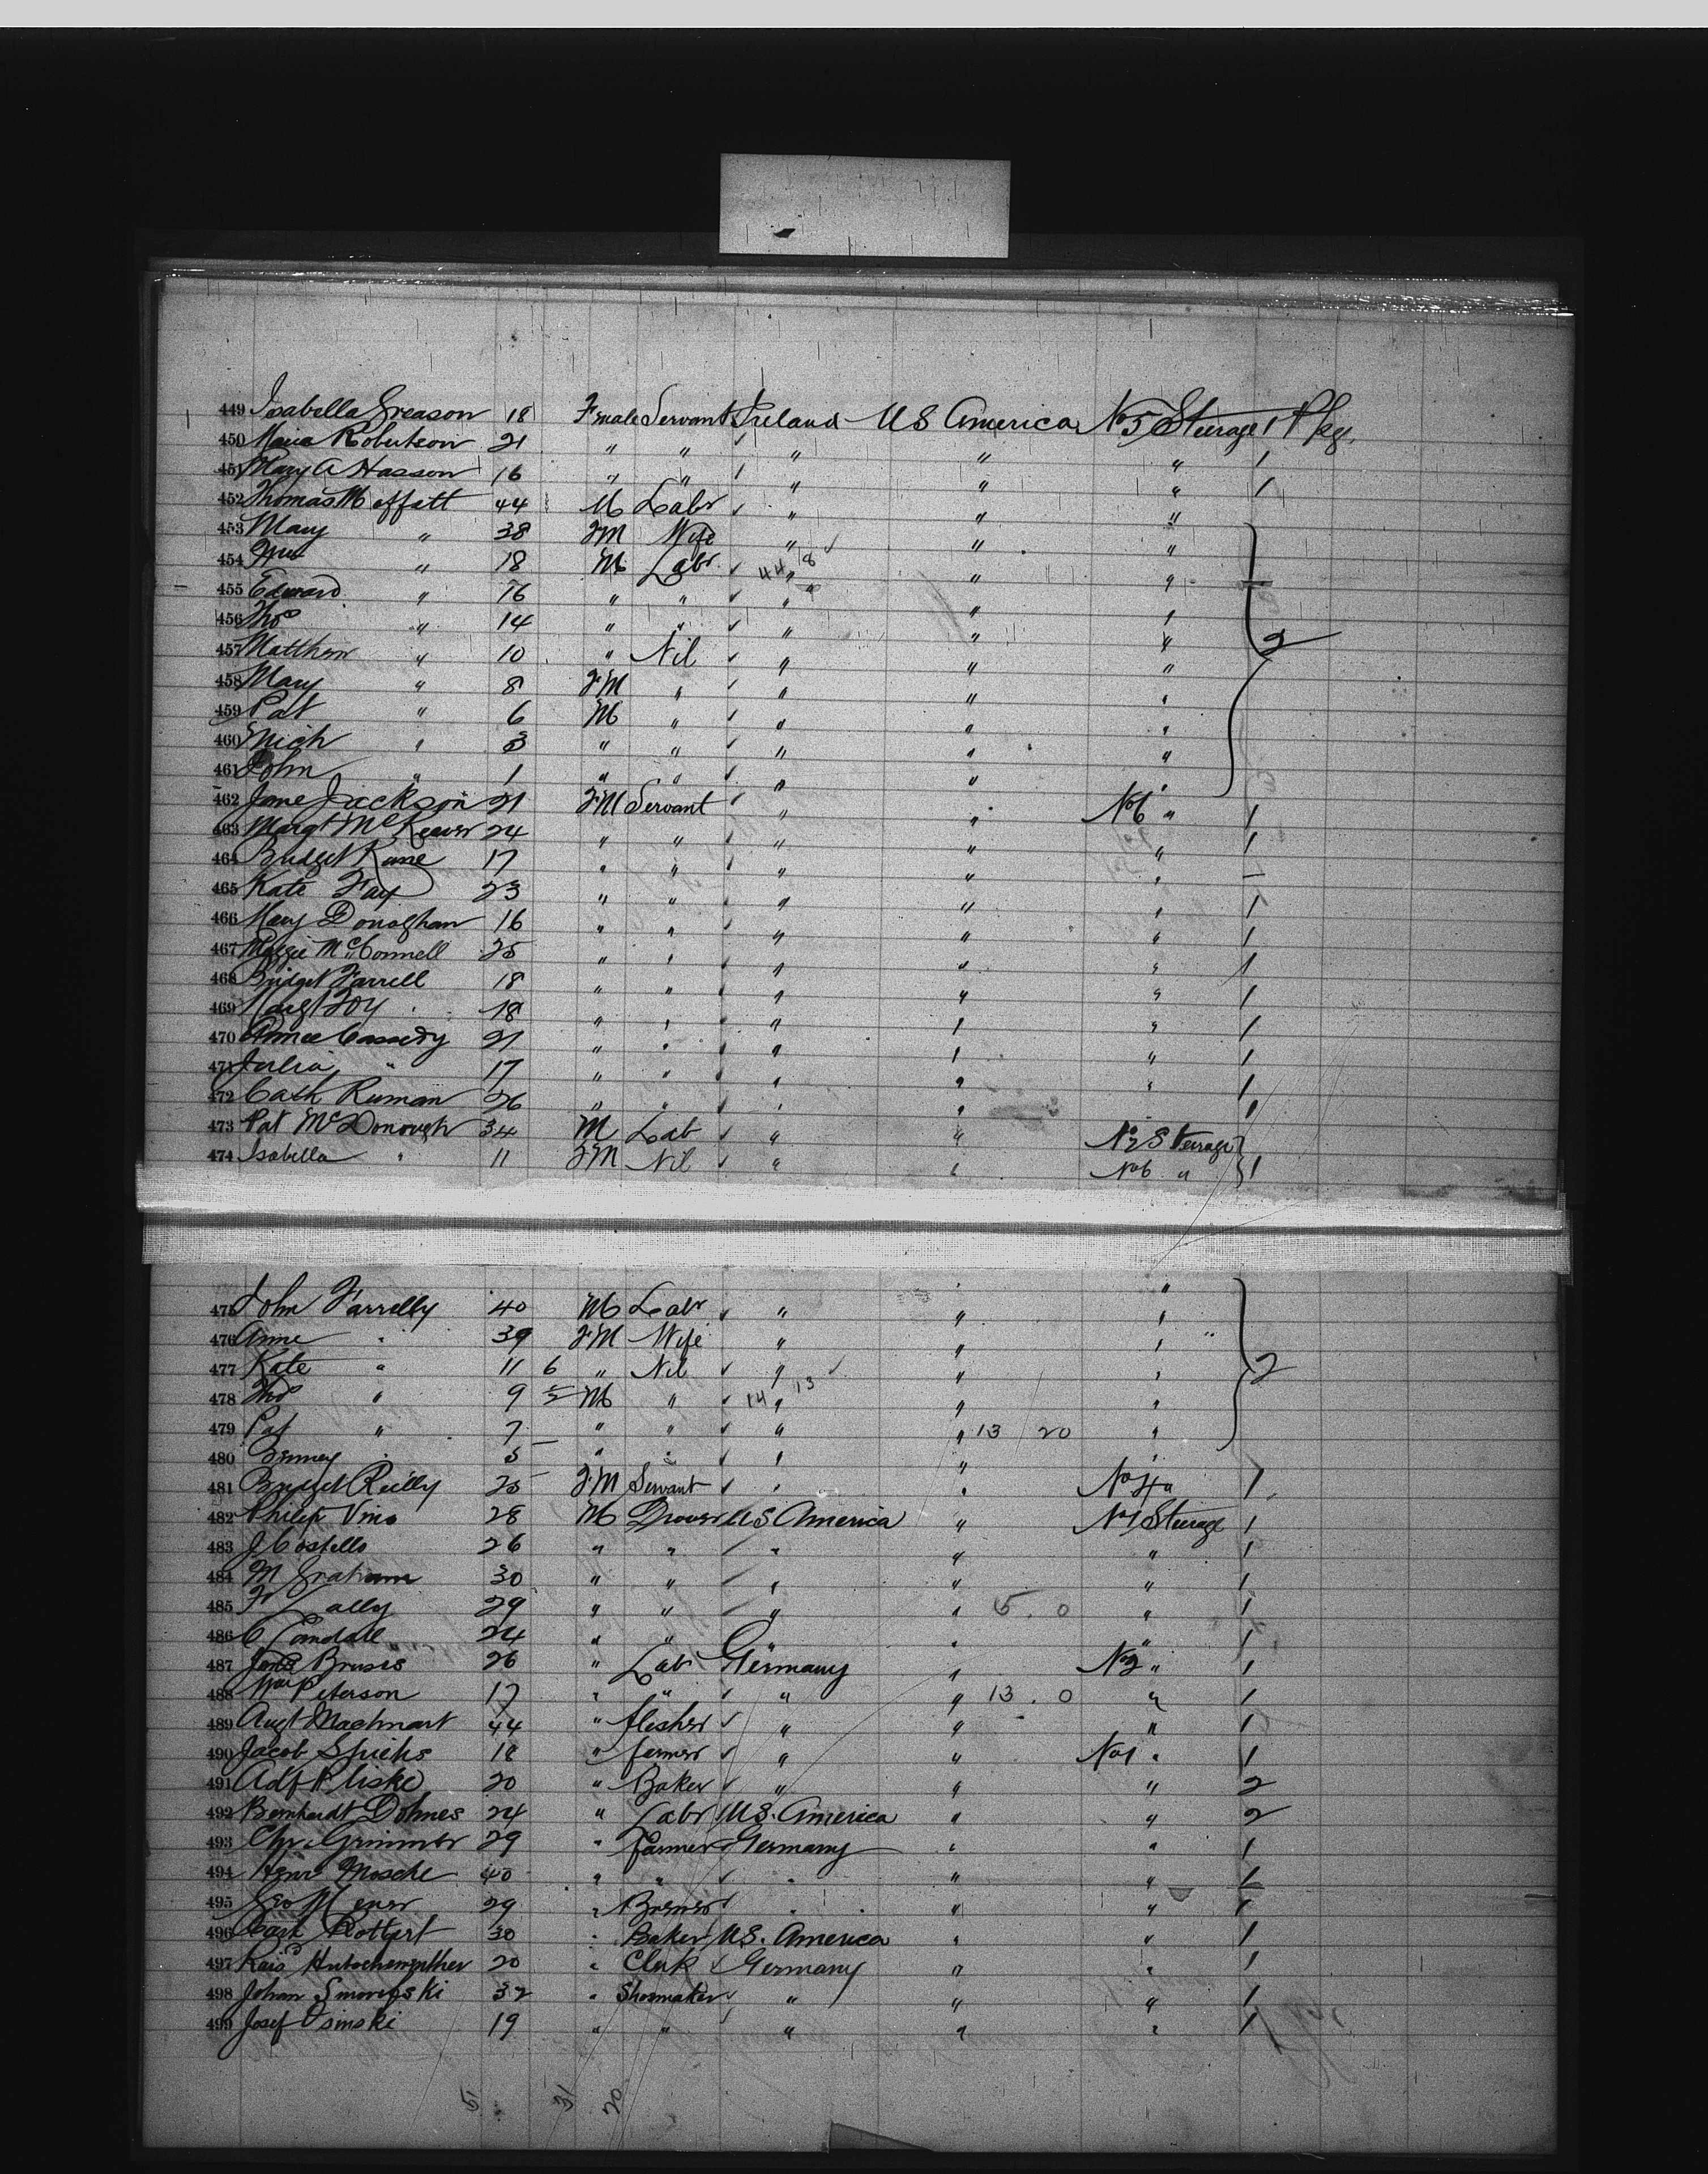 449 Isabella Greason 18 Female Servant Ireland US America No 5 Steerage 1 Pkg.
450 Maria Robertson 21 " " " " " 1
451 Mary A Hasson 16 " " " " " 1
452 Thomas Moffatt 44 M Labr " " "
453 Mary " 38 FM Wife " " "
454 Wm " 18 M Labr " " "
455 Edward " 16 " " " " "
456 Thos " 14 " " " " " 2
457 Matthew " 10 " Nil " " "
458 Mary " 8 FM " " " "
459 Pat " 6 M " " " "
460 Mich " 3 " " " " "
461 John " 1 " " " " "
462 Jane Jackson 21 FM Servant " " No 6 " 1
463 Margt McKeever 24 " " " " " 1
464 Bridget Kane 17 " " " " " 1
465 Kate Fay 23 " " " " " 1
466 Mary Donaghan 16 " " " " " 1
467 Maggie McConnell 25 " " " " " 1
468 Bridget Farrell 18 " " " " " 1
469 Margt Foy 18 " " " " " 1
470 Annie Cassedy 21 " " " " " 1
471 Julia " 17 " " " " " 1
472 Cath 26 " " " " " 1
473 Pat McDonough 34 M Lab " " No 2 Steerage
474 Isabella " 11 FM Nil " " No 6 " 1
475 John Farrelly 40 M Labr " " "
476 Anne " 39 FM Wife " " "
477 Kate " 11 6 " Nil " " " 2
478 Thos " 9 5 M " 14 " 13 " "
479 Pat " 7 " " " " 13 / 20 "
480 5 " " " " "
481 Bridget Reilly 25 FM Servant " " No 4 " 1
482 Philip 28 M Drover US America " No 1 Steerage 1
483 J Costello 26 " " " " " 1
484 M Graham 30 " " " " " 1
485 F Lally 29 " " " " 5 . 0 " 1
486 C 24 " " " " " 1
487 26 " Lab Germany " No 2 " 1
488 Peterson 17 " " " " 13 . 0 " 1
489 Augt 44 " flesher " " " 1
490 Jacob 18 " farmer " " No 1 " 1
491 Adf 20 " Baker " " " 2
492 Bernhardt Dohmes 24 " Labr U.S. America " " 2
493 Chr Grimmer 29 " farmer Germany " " 1
494 Mosche 40 " " " " " 1
495 Geo Meyer 29 " Brewer " " " 1
496 Rottgert 30 " Baker U.S. America " " 1
497 20 " Clerk Germany " " 1
498 Johan 32 " Shoemaker " " " 1
499 Josef Osinski 19 " " " " " 1
5 31 20